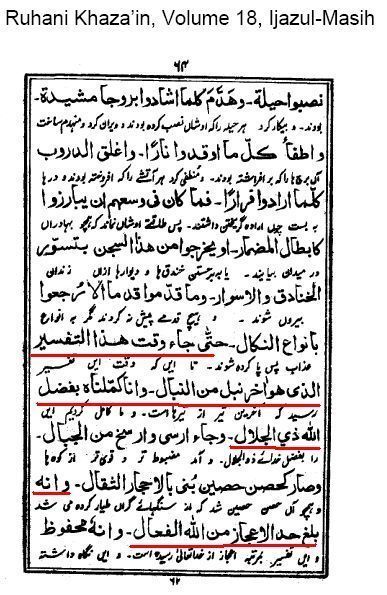 Ruhani Khaza’in, Volume 18, Ijazul-Masih
۶۴
نصبوا حيلة۔ وهدّم كلما اشادوا بروجا مشيدة۔
بودند۔ و بیکار کرد ہر حیلہ را کہ اوشاں نصب کردہ بودند و ویران کرد و منہدم ساخت
واطفأ كلّ ما اوقدوا نارًا۔ واغلق الدروب
آں برجہا را کہ برافراشتہ بودند۔ و منطفی کرد ہر آتشے را کہ افروختہ بودند و درہا
كلّما ارادوا فرارًا۔ فما كان فى وسعهم ان يبارزوا
بہ بست چوں ارادہ گریختن داشتند۔ پس طاقتے اوشاں نماند کہ ہمچو بہادراں
كابطال المضمار۔ او يخرجوا من هذا السجن بتسوّر
در میدان بیایند۔ یا بہ برجستن خندق ہا و دیوارہا ازاں زنداں
الخنادق والاسوار۔ وما قدّموا قدمًا الا رجعوا
بیروں شوند۔ و ہیچ قدمے پیش نہ کردند مگر بہ انواع
بانواع النكال۔ حتّٰى جاء وقت هذا التفسير
عذاب پس پا کردہ شوند۔ تا ایں کہ وقت ایں تفسیر
الذى هو اٰخر نبل من النبال۔ وانا كمّلناه بفضل
رسید کہ آخرین تیر از تیرہا است۔ و ما کامل کردیم ایں
الله ذي الجلال۔ وجاء ارسى وارسخ من الجبال۔
را بفضل خدائے ذوالجلال۔ و آمد مضبوط تر و قوی تر از کوہ ہا
وصار كحصن حصين بُنى بالاحجار الثقال۔ وانه
و ہمچو آں حصن حصین شد کہ از سنگہائے گراں طیار کردہ می شد
بلغ حد الاعجاز من الله الفعال۔ وانهٗ محفوظ
و ایں تفسیر بمرتبہ اعجاز از خدا تعالیٰ رسیدہ است۔ و ایں نگاہ داشتہ
۶۲